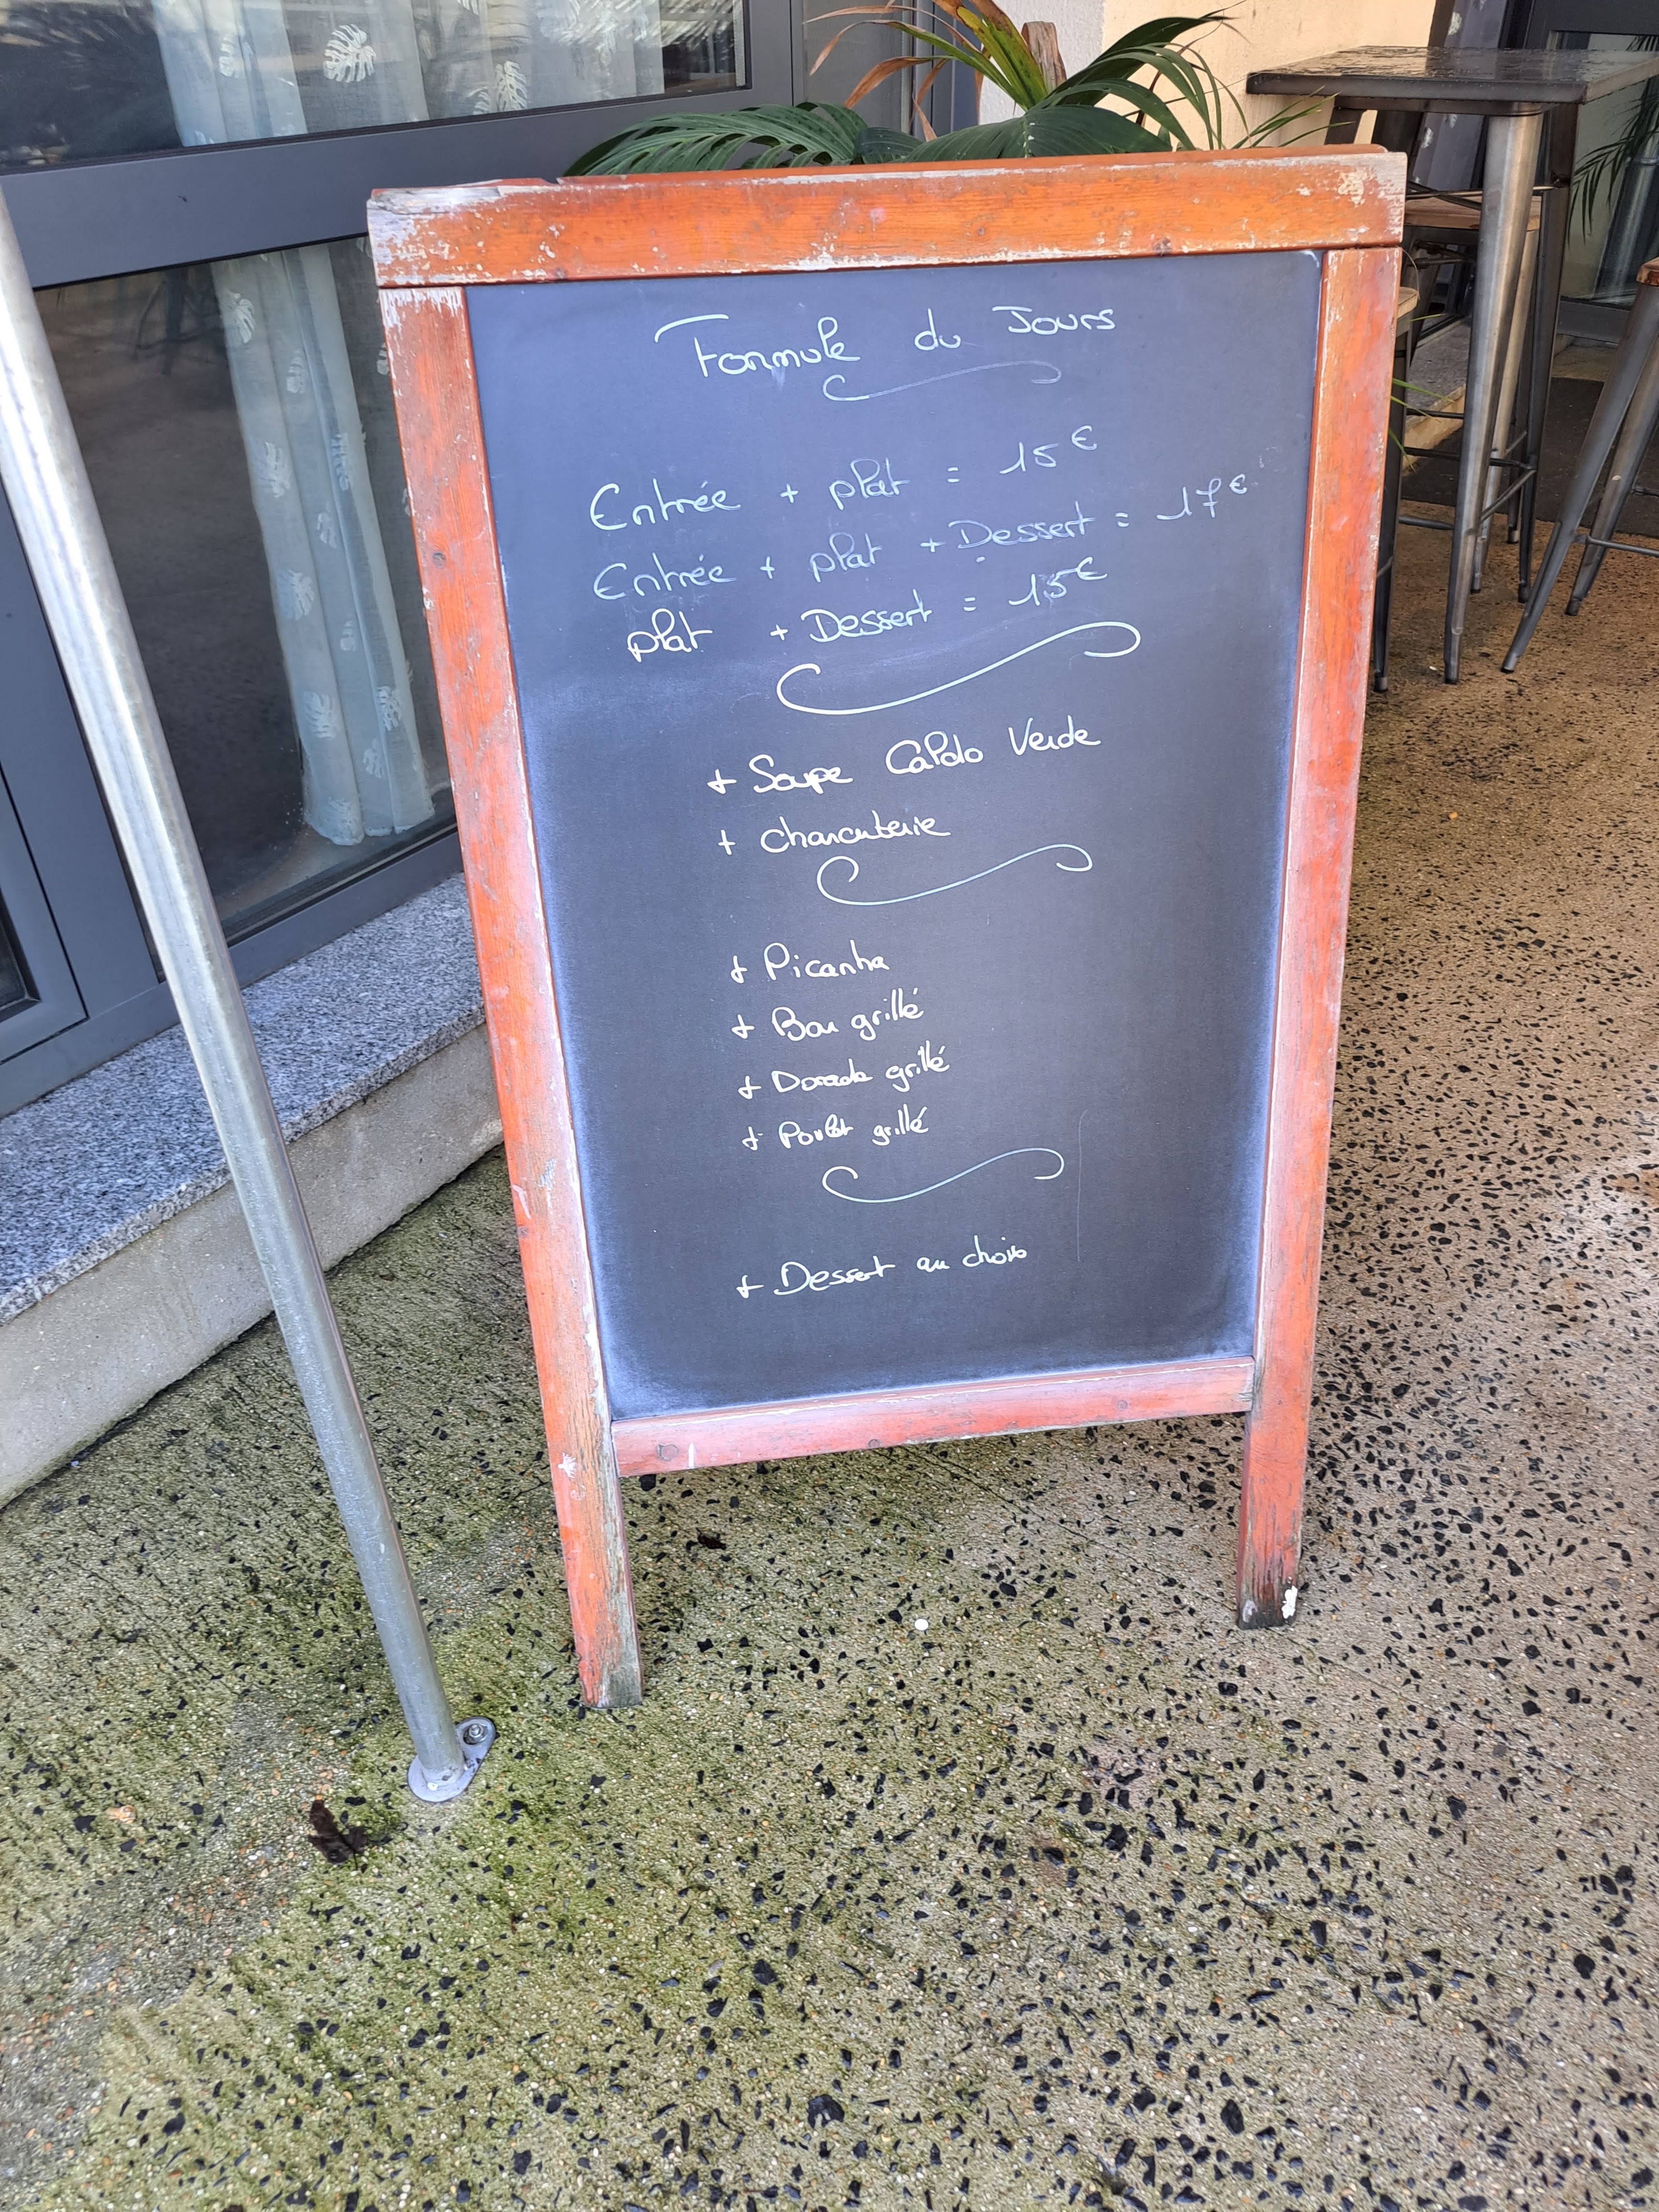 Formule du Jours
Entrée + plat = 15€
Entrée + plat + Dessert = 17€
plat + Dessert = 15€
+ Soupe Caldo Verde
+ Charcuterie
+ Picanha
+ Bar grillé
+ Dorade grillé
+ Poulet grillé
+ Dessert au choix